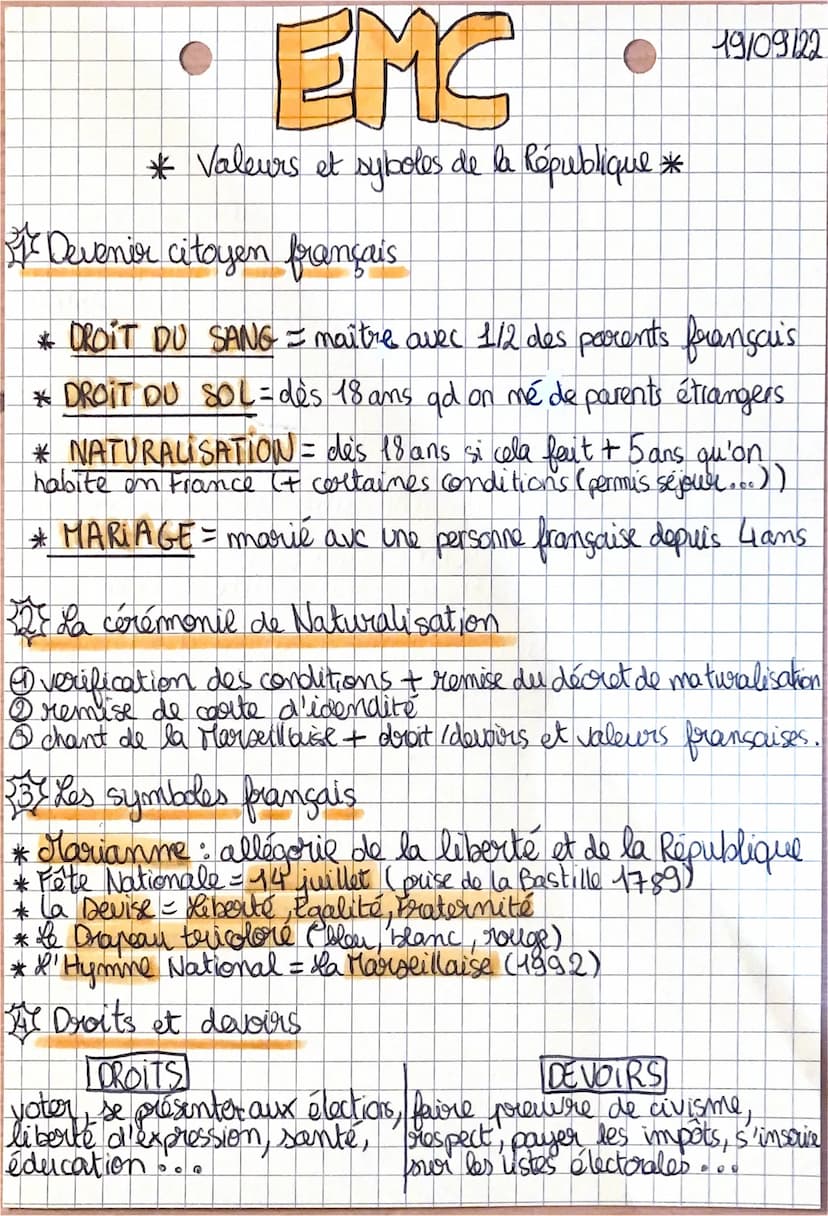 EMC
19/09/22
* Valeurs et syboles de la République *
1 Devenir citoyen français
* DROIT DU SANG = naître avec 1/2 des parents français
* DROIT DU SOL = dès 18 ans qd on né de parents étrangers
* NATURALISATION = dès 18 ans si cela fait + 5 ans qu'on
habite en France (+ certaines conditions (permis séjour...))
* MARIAGE = marié avc une personne française depuis 4 ans
2 La cérémonie de Naturalisation
① verification des conditions + remise du décret de naturalisation
② remise de carte d'idendité
③ chant de la Marseillaise + droit / devoirs et valeurs françaises.
3 Les symboles français
* Marianne : allégorie de la liberté et de la République
* Fête Nationale = 14 juillet (prise de la Bastille 1789)
* La Devise = Liberté, Egalité, Fraternité
* Le Drapeau tricolore (bleu, blanc, rouge)
* L'Hymne National = La Marseillaise (1992)
4 Droits et devoirs
DROITS
voter, se présenter aux élections,
liberté d'expression, santé,
éducation ...
DEVOIRS
faire preuvre de civisme,
respect, payer les impôts, s'inscrire
sur les listes électorales ...